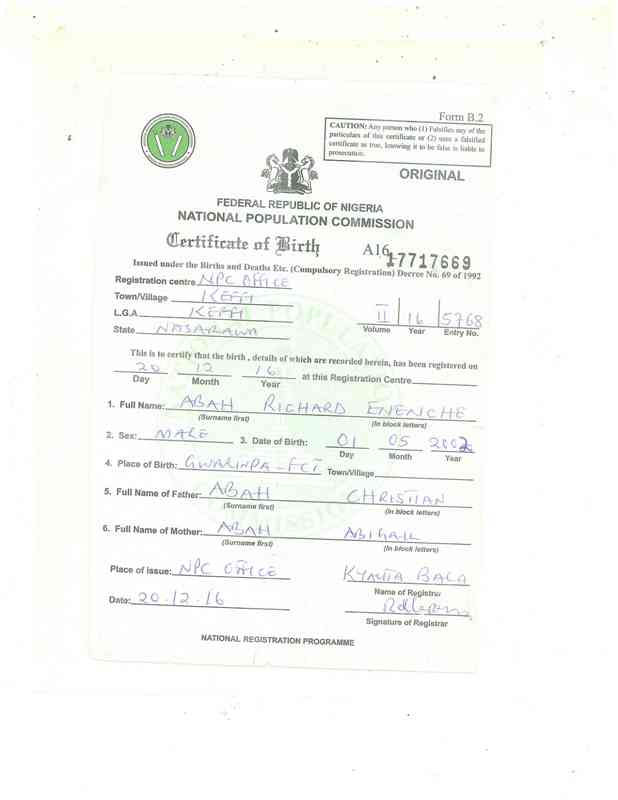 Form B.2
CAUTION: Any person who (1) Falsifies any of the
particulars of this certificate or (2) uses a falsified
certificate as true, knowing it to be false is liable to
prosecution.
ORIGINAL
FEDERAL REPUBLIC OF NIGERIA
NATIONAL POPULATION COMMISSION
Certificate of Birth
A16 17717669
Issued under the Births and Deaths Etc. (Compulsory Registration) Decree No. 69 of 1992
Registration centre NPC OFFICE
Town/Village KEFFI
L.G.A. KEFFI
State NASARAWA
II 16 5768
Volume Year Entry No.
This is to certify that the birth, details of which are recorded herein, has been registered on
20 12 16 at this Registration Centre
Day Month Year
1. Full Name: ABAH RICHARD ENENCHE
(Surname first) (In block letters)
2. Sex: MALE 3. Date of Birth: 01 05 2002
Day Month Year
4. Place of Birth: GWARINPA-FCT Town/Village
5. Full Name of Father: ABAH CHRISTIAN
(Surname first) (In block letters)
6. Full Name of Mother: ABAH ABIGAIL
(Surname first) (In block letters)
Place of issue: NPC OFFICE
Date: 20-12-16
BALA
Name of Registrar
Signature of Registrar
NATIONAL REGISTRATION PROGRAMME